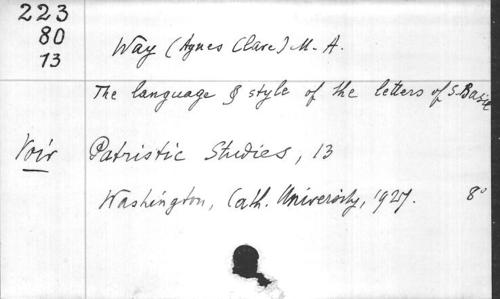 223
80
13
Way (Agnes Clare) M. A.
The language & style of the letters of S. Basil
Voir Patristic Studies, 13
Washington, Cath. University, 1927. 8°